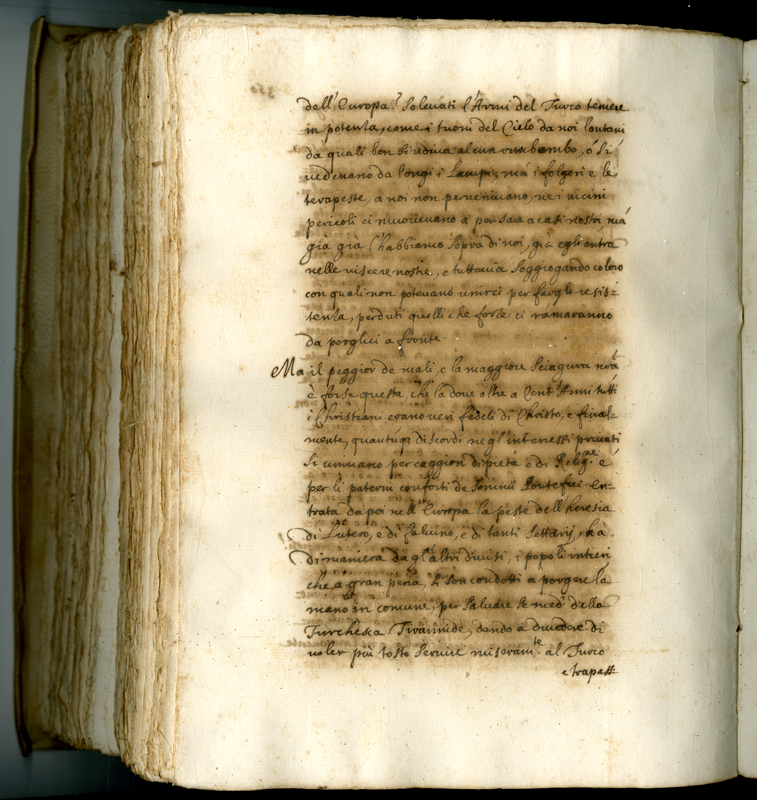 dell'Europa. Solevati l'Armi del Turco temere
in potenza, come i tuoni del Cielo da noi lontani
da quali ben si udiva alcun rimbombo, ó si
vedevano da longi i Lampi, má i folgori e le
tempeste, a noi non pervenivano, ne i vicini
pericoli ci movevano a pensar a casi nostri má
giá giá l'habbiamo sopra di noi, giá egli entrá
nelle viscere nostre, e tuttavia soggiogando coloro
con quali non potevano unirci per fargli resis=
tenza, perduti quelli che forse ci
da porglici a fronte.
Ma il peggior de mali, e la maggiore Sciagura nrâ
è forse questa, che la dove oltre a Cent'Anni tutti
i Christiani erano veri fedeli di Christo, e final=
mente, quantunqz discordi negl'interessi privati
si univano per caggion di pietà e di Relig.ne e
per li paterni conforti de Sommi Pontefici En=
trata da poi nell'Europa la peste dell'heresia
di Lutero, e di Calvino, e di tanti Settarij, ha
di maniera dagl'altri divisi, i popoli intieri
che á gran pena son condotti a porgere la
mano in comune, per salvare se med.i della
Turchesca Tirannide, dando a divedere di
voler più tosto servire miseram.te al Turco
e trapass: